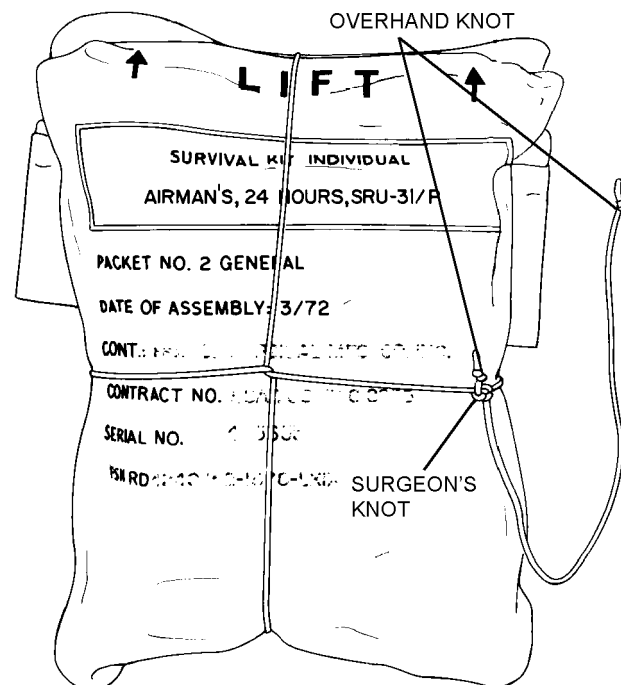 OVERHAND KNOT
LIFT
SURVIVAL KIT INDIVIDUAL
AIRMAN'S, 24 HOURS, SRU-31/P
PACKET NO. 2 GENERAL
DATE OF ASSEMBLY: 3/72
CONT.
CONTRACT NO.
SERIAL NO.
SURGEON'S
KNOT